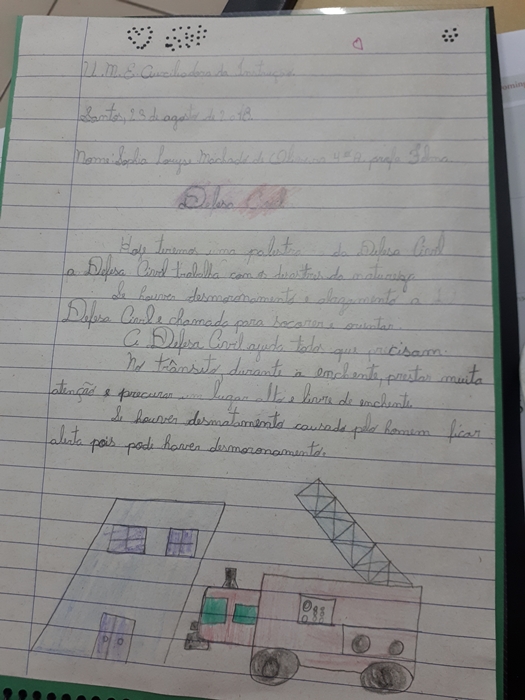 U.M.E. Auxiliadora da Instrução
Santos, 23 de agosto de 2018
Nome: Sophia Louyse Machado de Oliveira 4º A profa
Defesa Civil
Hoje tivemos uma palestra da Defesa Civil
a Defesa Civil trabalha com os da natureza
Se houver desmoronamento e alagamento a
Defesa Civil é chamada para socorrer e orientar.
A Defesa Civil ajuda todos que precisam.
No trânsito durante a enchente, prestar muita
atenção e procurar um lugar alto e livre de enchente.
Se houver desmatamento causado pelo homem ficar
alerta pois pode haver desmoronamento.